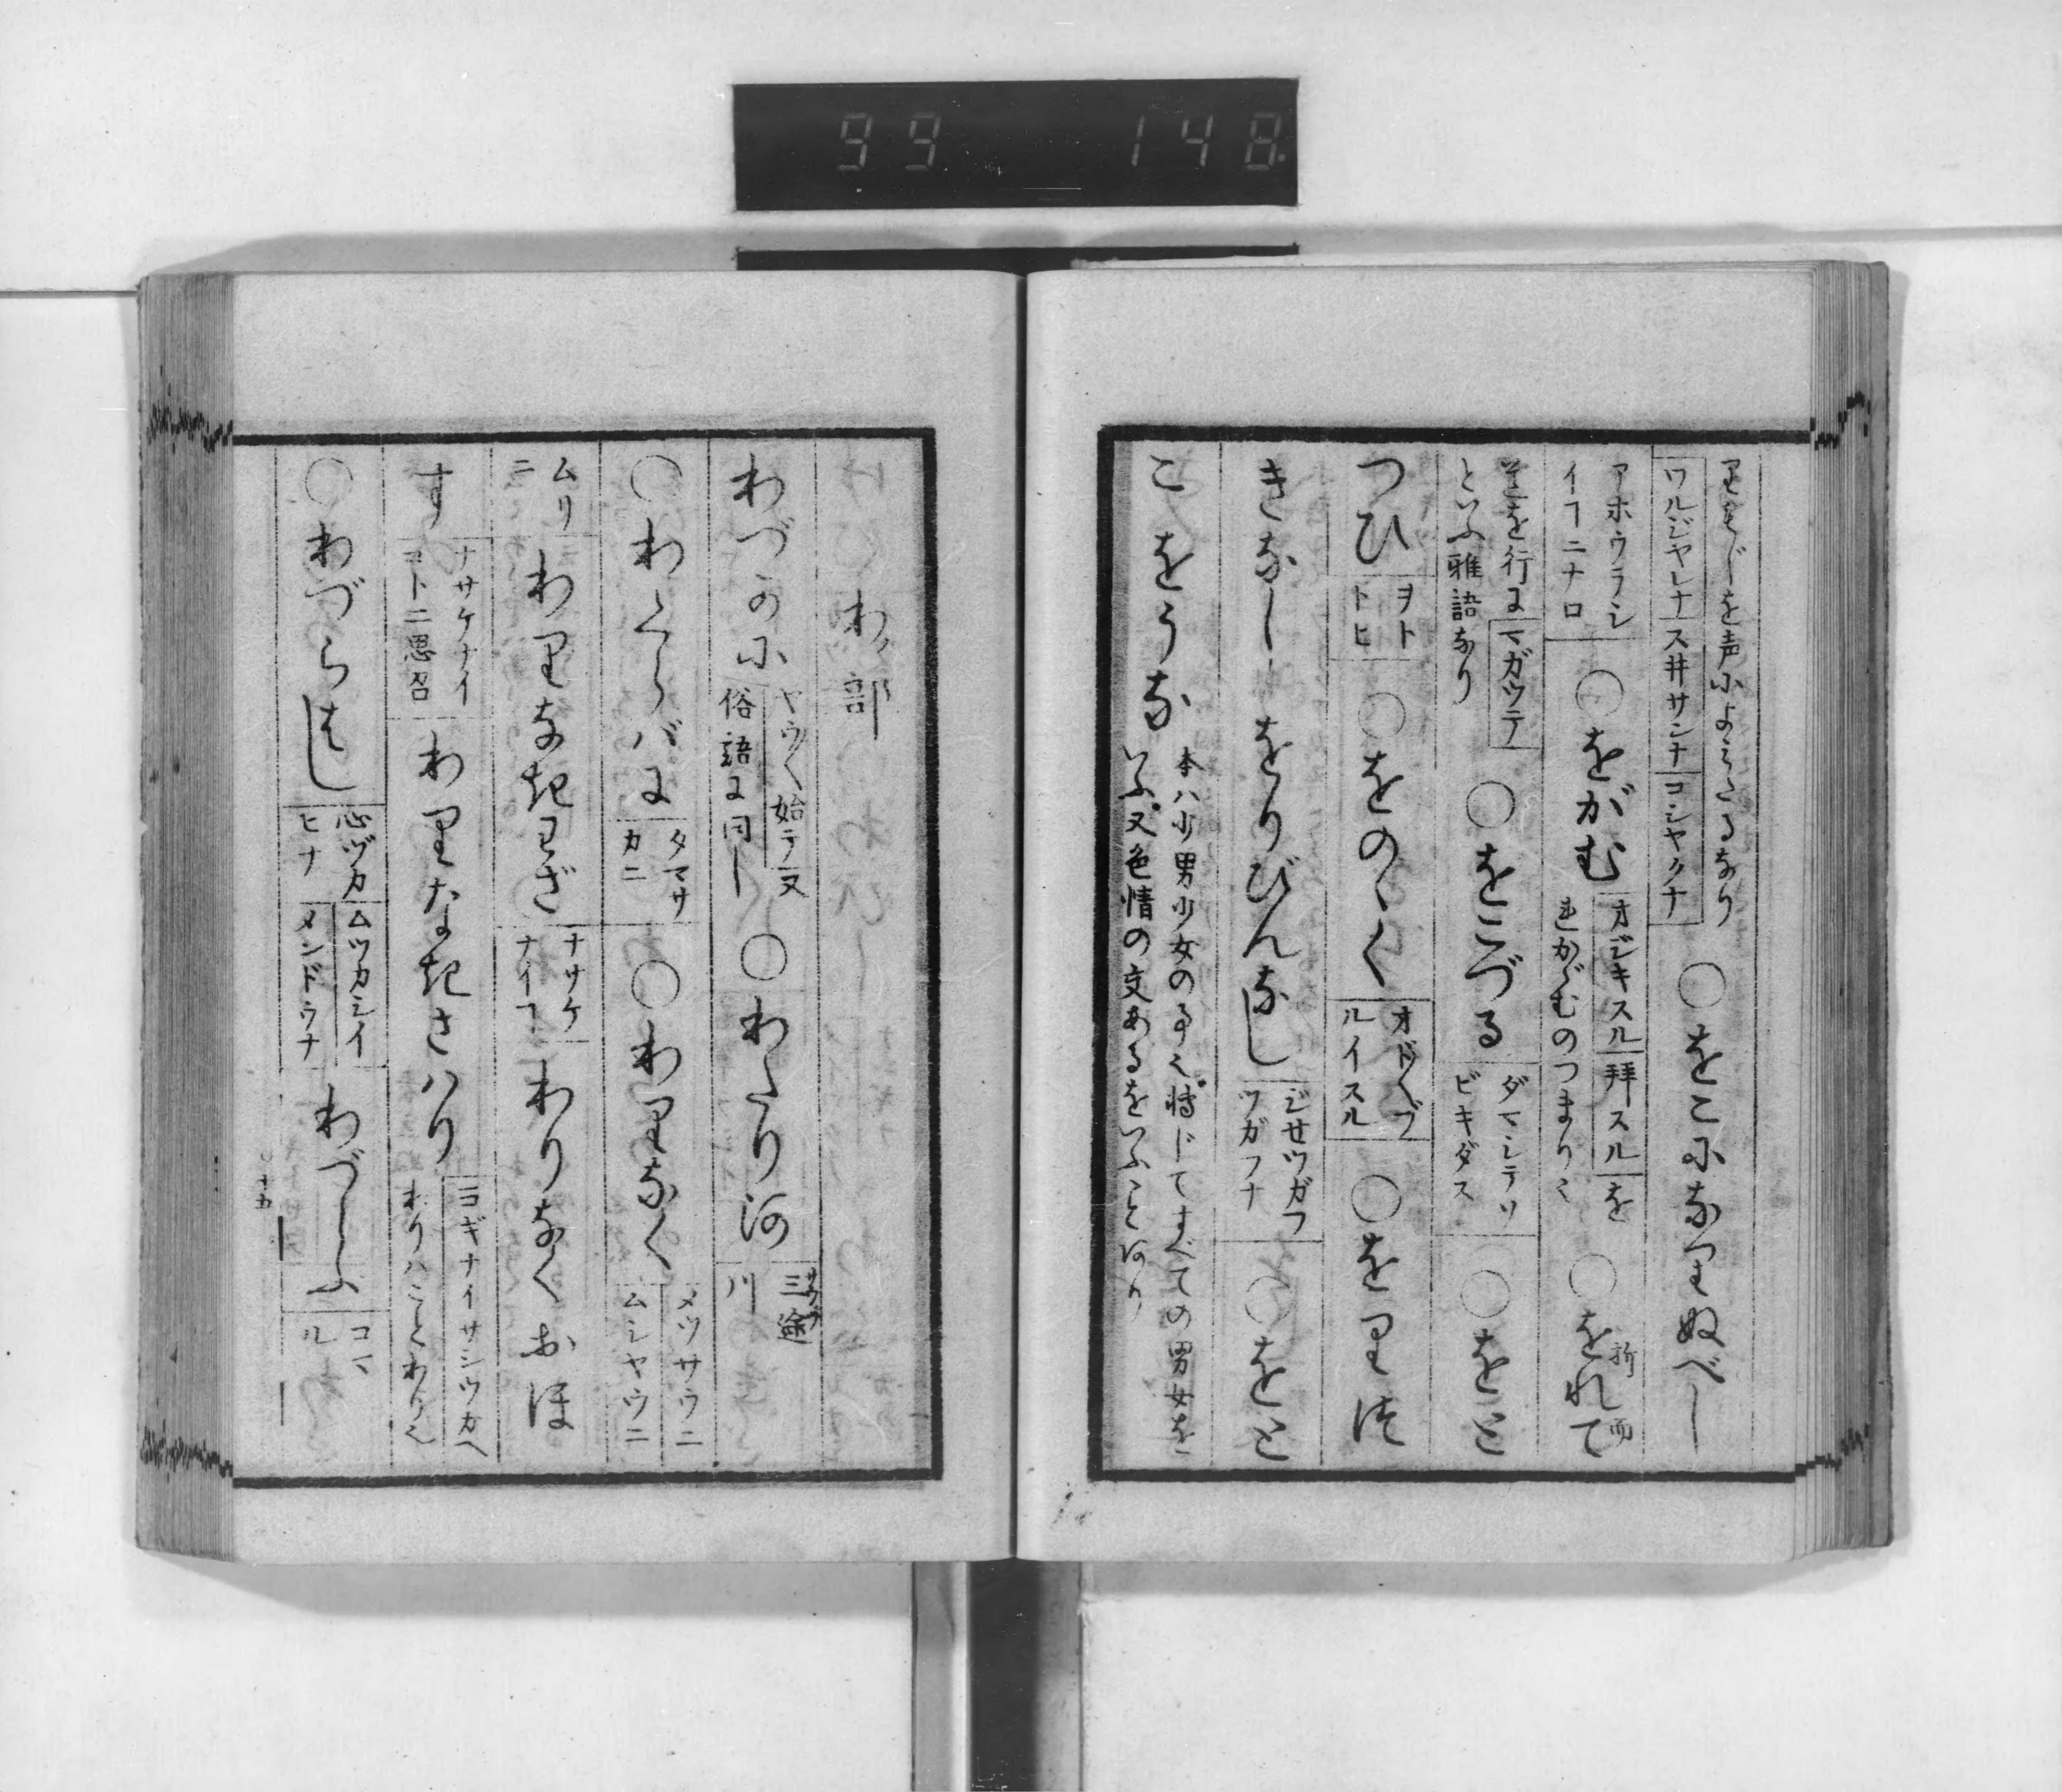 99 148
りもじを声によみたるなり
ワルジヤレナ スヰサンナ コシヤクナ
○をこになりぬべし
アホウラシ
イヿニナロ
○をがむ
オジキスル 拝スル を
れかゞむのつまり也
○をれて 折而
其を行に マガウテ
といふ雅語なり
○をこづる
ダマシテソ
ビキダス
○をと
つひ
ヲト
トヒ
○をのゝく
オドヘブ
ルイスル
○をりは
きなし をりびんなし
ジセツガフ
ツガフナ
○をと
こをうな
本ハ少男少女の事也 転じてすべての男女を
いふ 又色情の文あるをいふことあり
わノ部
わづかに
ヤウ〳〵始テ 又
俗語に同し
○わたり河
三途
川
○わくらバに
タマサ
カニ
○わりなく
メツサウニ
ムシヤウニ
ムリ
ニ
わりなきわざ
ナサケ
ナイヿ
わりなくおほ
す
ナサケナイ
コトニ思召
わりなきさハり
ヨギナイサシツカヘ
わりハことわり也
○わづらはし
心ヅカ
ヒナ
ムツカシイ
メンドウナ
わづらふ
コマ
ル
○十五